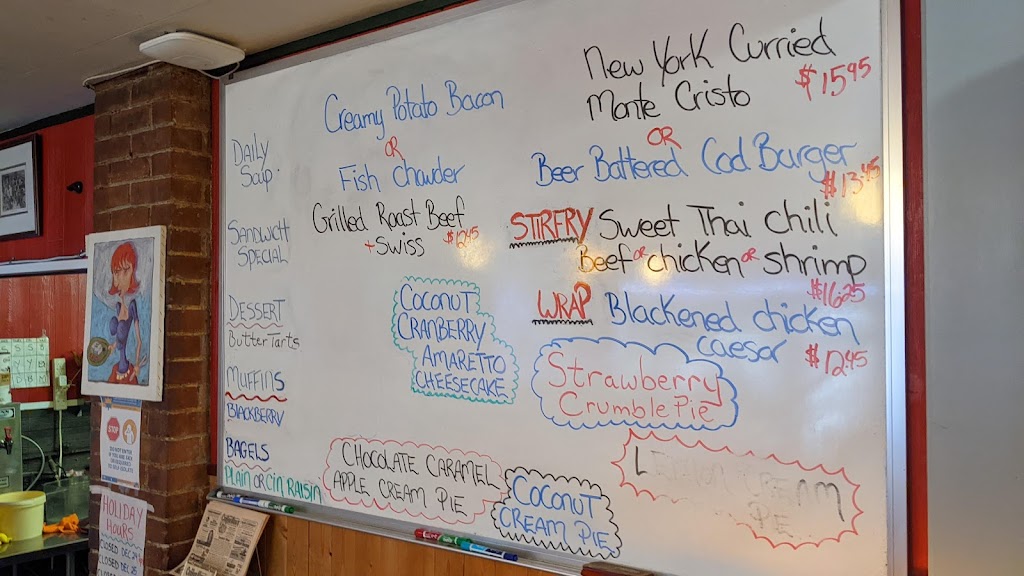 DAILY
Soup.
Creamy Potato Bacon
OR
Fish Chowder
SANDWICH
SPECIAL
Grilled Roast Beef
+ Swiss
DESSERT
Butter Tarts
MUFFINS
BLACKBERRY
BAGELS
PLAIN OR CIN RAISIN
COCONUT
CRANBERRY
AMARETTO
CHEESECAKE
CHOCOLATE CARAMEL
APPLE CREAM PIE
COCONUT
CREAM PIE
New York Curried
Monte Cristo
$15.95
OR
Beer Battered Cod Burger
$13.45
STIRFRY Sweet Thai Chili
Beef or chicken or shrimp
$16.25
WRAP Blackened chicken
caesar $12.45
Strawberry
Crumble Pie
PIE
STOP
HOLIDAY
HOURS
CLOSED DEC 24
CLOSED DEC 25